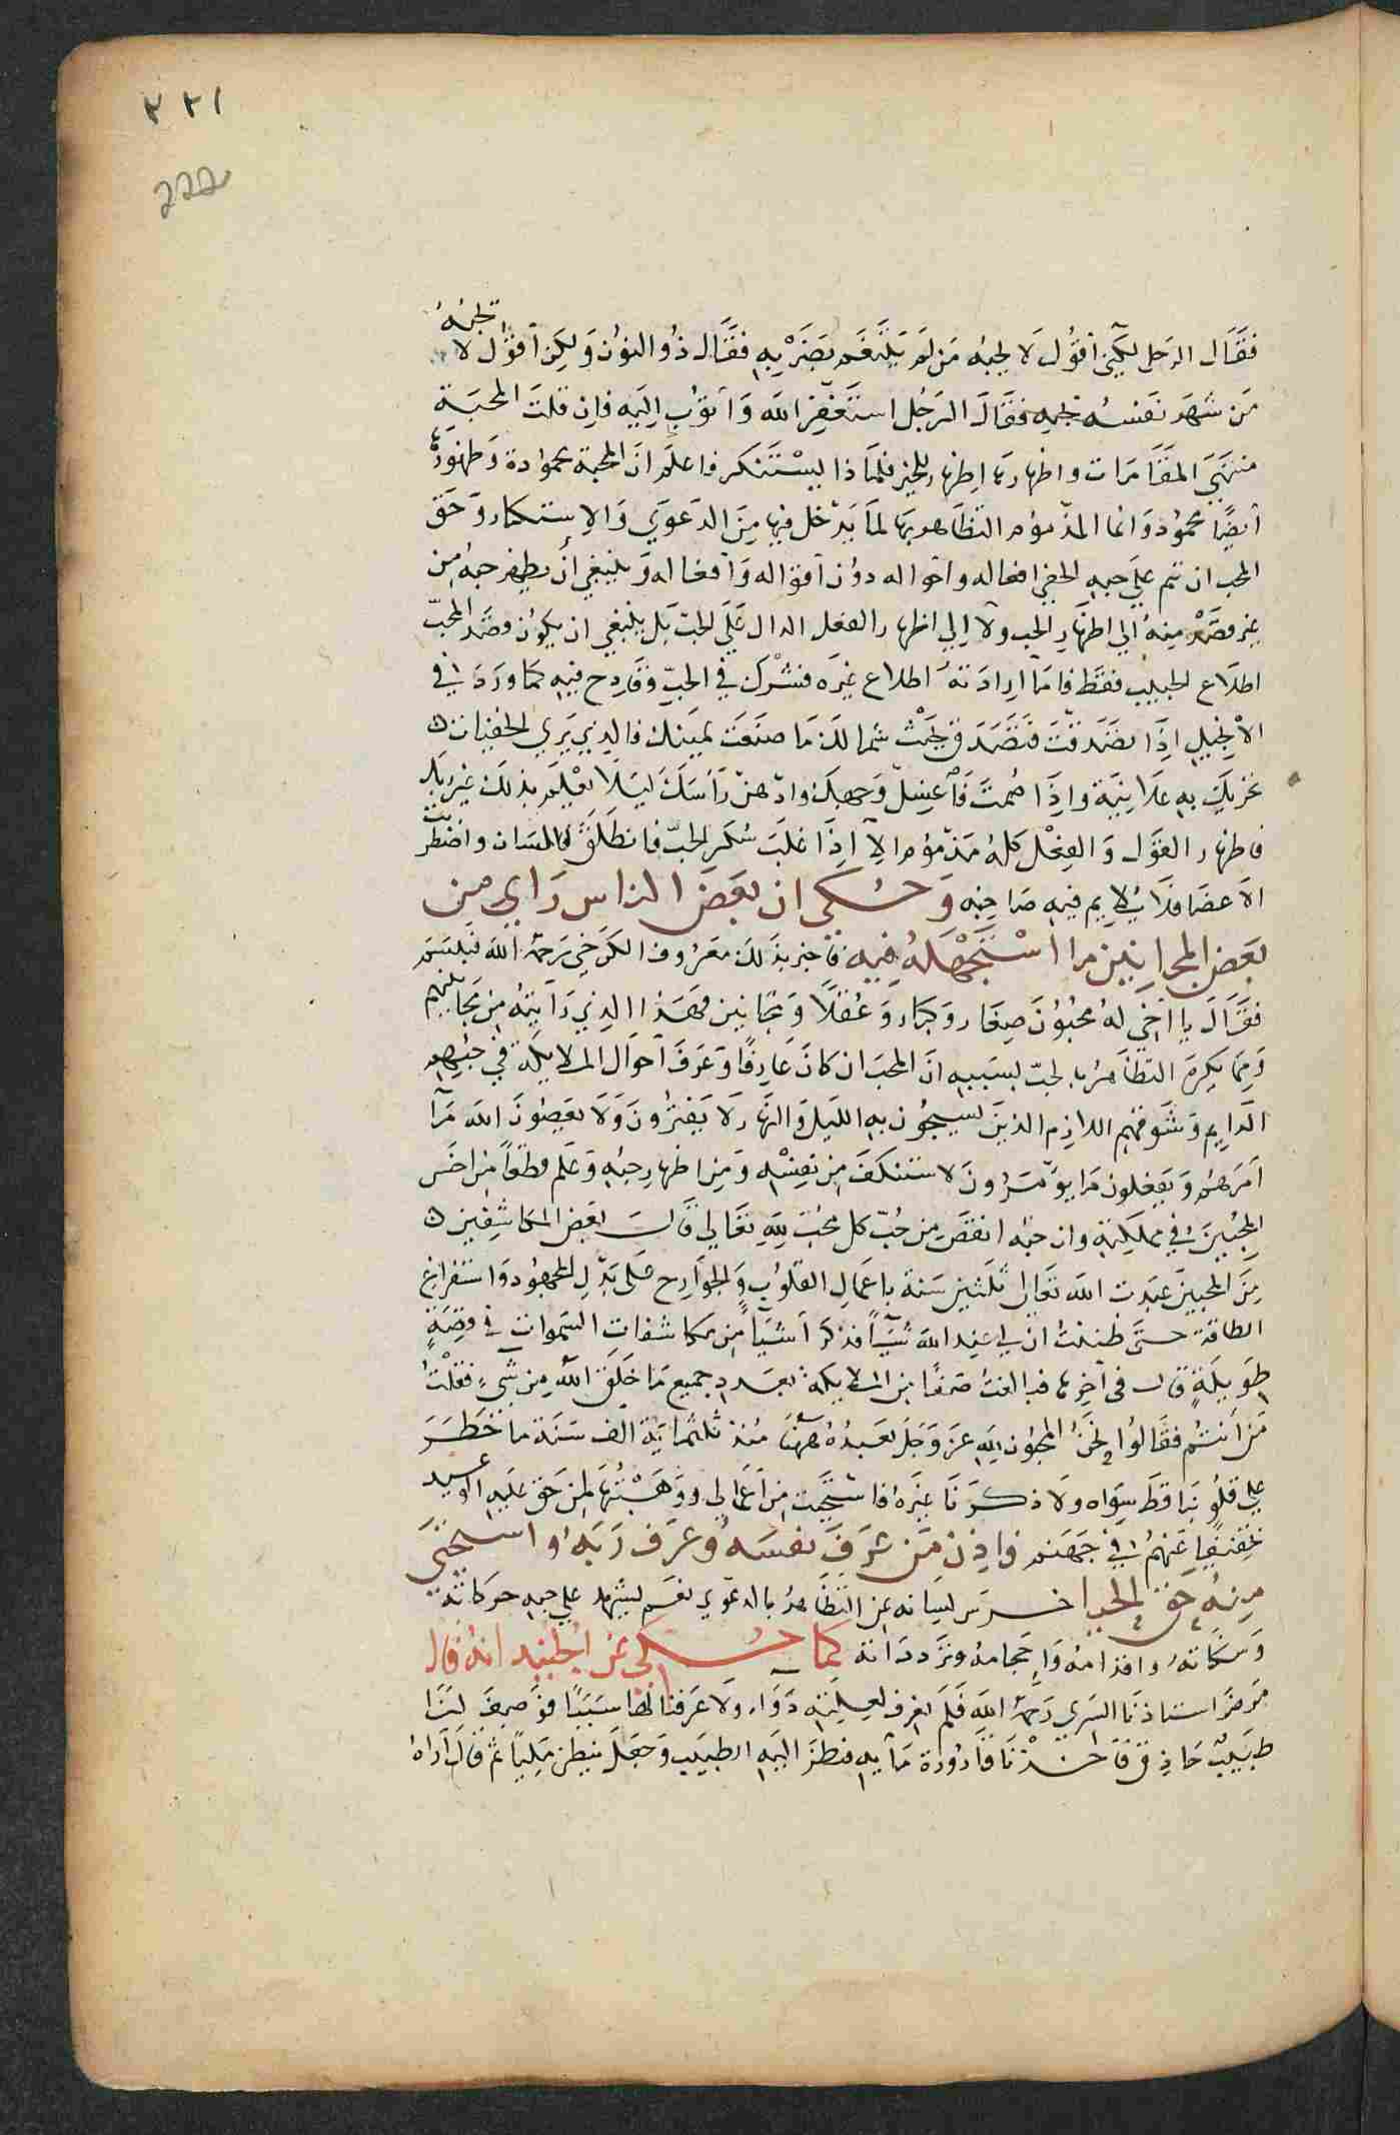 ٢٢١
222
فقَال الرجل لكني اقول لا يحبه من لم يتنعم بضربه فقال ذو النون ولكن اقول لا يحبه
من شهر نفسه بحبه فقال الرجل استغفر الله واتوب اليه فان قلت المحبة
منتهى المقامات واظهارها اظهار للخير فلماذا يستنكر فاعلم ان المحبة محمودة وظهورها
ايضا محمود وانما المذموم التظاهر بها لما يدخل فيها من الدعوي والاستكبار وحق
المحب ان تتم علي حبه الخفي افعاله واحواله دون اقواله وافعاله وينبغي ان يظهر حبه من
غير قصد منه الي اظهار الحب ولا الي اظهار الفعل الدال علي الحب بل ينبغي ان يكون قصد المحب
اطلاع الحبيب فقط فاما ارادته اطلاع غيره فشرك في الحب وقادح فيه كما ورد في
الانجيل اذا تصدقت فتصدق بحيث شمالك ما صنعت يمينك فالذي يري الخفيات
يجزيك به علانية واذا صمت فاغسل وجهك وادهن رأسك ليلا يعلم بذلك غير ربك
فاظهار القول والفعل كله مذموم الا اذا غلب سكر الحب فانطلق اللسان واضطربت
الاعضا فلا يلام فيه صاحبه وحكي ان بعض الناس راي من
بعض المجانين ما استجهله فيه فاخبر بذلك معروف الكرخي رحمه الله فتبسم
فقال يا اخي له محبون صغار وكبار وعقلا ومجانين فهذا الذي رايته من مجانينهم
ومما يكره التظاهر بالحب بسببه ان المحب ان كان عارفا وعرف احوال الملايكة في حبهم
الدايم وشوقهم اللازم الذين يسبحون به الليل والنهار لا يفترون ولا يعصون الله ما
امرهم ويفعلون ما يؤمرون لاستنكف من نفسه ومن اظهار حبه وعلم قطعا من اخس
المحبين في مملكته وان حبه انقص من حب كل محب لله تعالي قال بعض المكاشفين
من المحبين عبدت الله تعالي ثلثين سنة باعمال القلوب والجوارح علي بذل المجهود واستفراغ
الطاقة حتي ظننت ان لي عند الله شيا فذكر اشيا من مكاشفات السموات في قصة
طويلة قال في آخرها فبلغت صفا من الملايكة بعدد جميع ما خلق الله من شيء فقلت
من انتم فقالوا نحن المحبون لله عز وجل نعبده ههنا منذ ثلثماية الف سنة ما خطر
علي قلوبنا قط سواه ولا ذكرنا غيره فاستحييت من اعمالي ووهبتها لمن حق عليه الوعيد
تخفيفا عنهم في جهنم فاذن من عرف نفسه وعرف ربه واستحي
منه حق الحيا خرس لسانه عن التظاهر بالدعوي نعم يشهد علي حبه حركاته
وسكناته واقدامه واحجامه وتردداته كما حكي عن الجنيد انه قال
مرض استاذنا السري رحمه الله فلم يعرف لعلته دواء ولا عرفنا لها سببا فوصف لنا
طبيب حاذق فاخذنا قارورة مآيه فنظر اليه الطبيب وجعل ينظر مليا ثم قال اراه